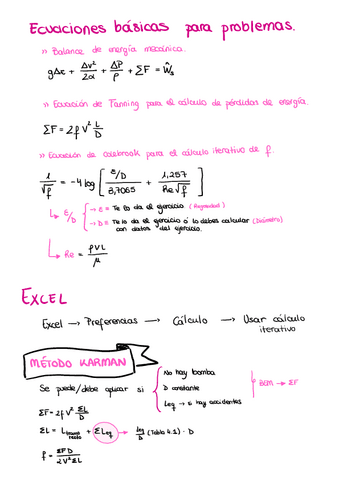 Ecuaciones básicas para problemas.
» Balance de energía mecánica.
gΔz + Δv²/2α + ΔP/ρ + ΣF = Ŵs
» Ecuación de Fanning para el cálculo de pérdidas de energía
ΣF = 2f V² L/D
» Ecuación de colebrook para el cálculo iterativo de f.
1/√f = -4 log [ (ε/D)/3,7065 + 1,257/(Re√f) ]
↳ ε/D { → ε = Te lo da el ejercicio (Rugosidad)
→ D = Te lo da el ejercicio ó lo debes calcular (Diámetro)
con datos del ejercicio.
↳ Re = ρVL/μ
EXCEL
Excel → Preferencias → Cálculo → Usar cálculo
iterativo
MÉTODO KARMAN
Se puede/debe aplicar si { No hay bomba
D constante
Leq → si hay accidentes
BEM → ΣF
ΣF = 2f V² ΣL/D
ΣL = L tramo recto + ΣLeq → Leq/D (Tabla 4.1) · D
f = ΣF D / 2V²ΣL